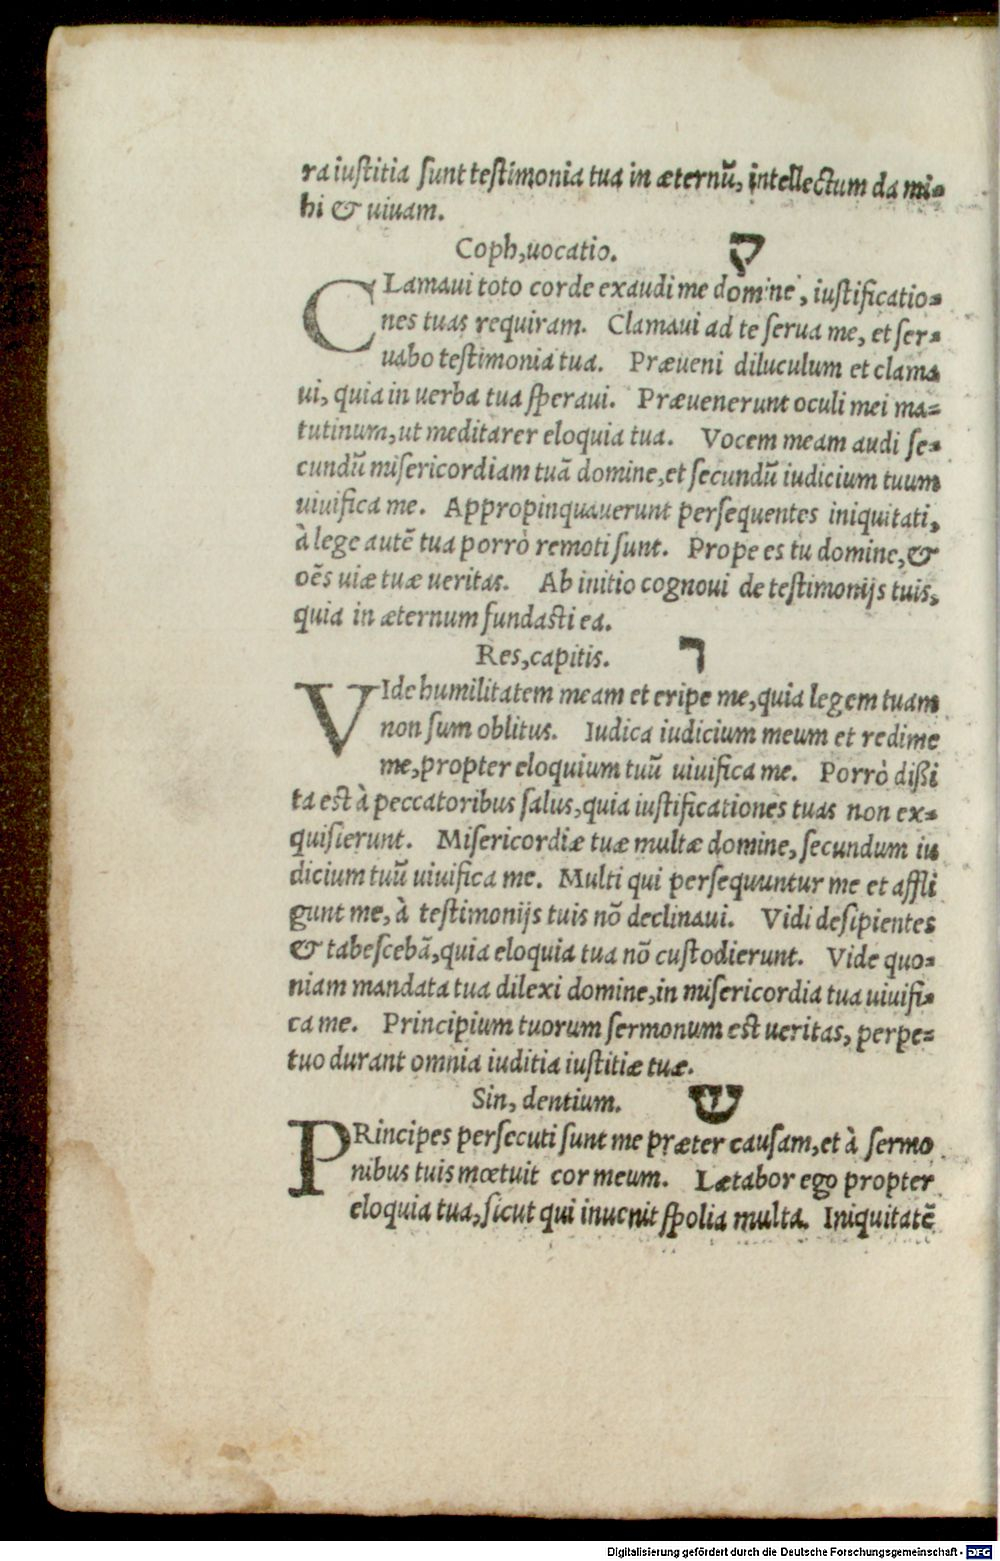 ra iuſtitia ſunt teſtimonia tua in æternũ, intellectum da mi⸗
hi & uiuam.
Coph, uocatio. ק
CLamaui toto corde exaudi me domine, iuſtificatio⸗
nes tuas requiram. Clamaui ad te ſerua me, et ſer⸗
uabo teſtimonia tua. Præueni diluculum et clama
ui, quia in uerba tua ſperaui. Præuenerunt oculi mei ma⸗
tutinum, ut meditarer eloquia tua. Vocem meam audi ſe⸗
cundũ miſericordiam tuã domine, et ſecundũ iudicium tuum
uiuifica me. Appropinquauerunt perſequentes iniquitati,
à lege autẽ tua porrò remoti ſunt. Prope es tu domine, &
oẽs uiæ tuæ ueritas. Ab initio cognoui de teſtimonijs tuis,
quia in æternum fundaſti ea.
Res, capitis. ר
VIde humilitatem meam et eripe me, quia legem tuam
non ſum oblitus. Iudica iudicium meum et redime
me, propter eloquium tuũ uiuifica me. Porrò dißi
ta eſt à peccatoribus ſalus, quia iuſtificationes tuas non ex⸗
quiſierunt. Miſericordiæ tuæ multæ domine, ſecundum iu
dicium tuũ uiuifica me. Multi qui perſequuntur me et affli
gunt me, à teſtimonijs tuis nõ declinaui. Vidi deſipientes
& tabeſcebã, quia eloquia tua nõ cuſtodierunt. Vide quo⸗
niam mandata tua dilexi domine, in miſericordia tua uiuifi⸗
ca me. Principium tuorum ſermonum eſt ueritas, perpe⸗
tuo durant omnia iuditia iuſtitiæ tuæ.
Sin, dentium. ש
PRincipes perſecuti ſunt me præter cauſam, et à ſermo
nibus tuis mœtuit cor meum. Lætabor ego propter
eloquia tua, ſicut qui inuenit ſpolia multa. Iniquitatẽ
Digitalisierung gefördert durch die Deutsche Forschungsgemeinschaft - DFG